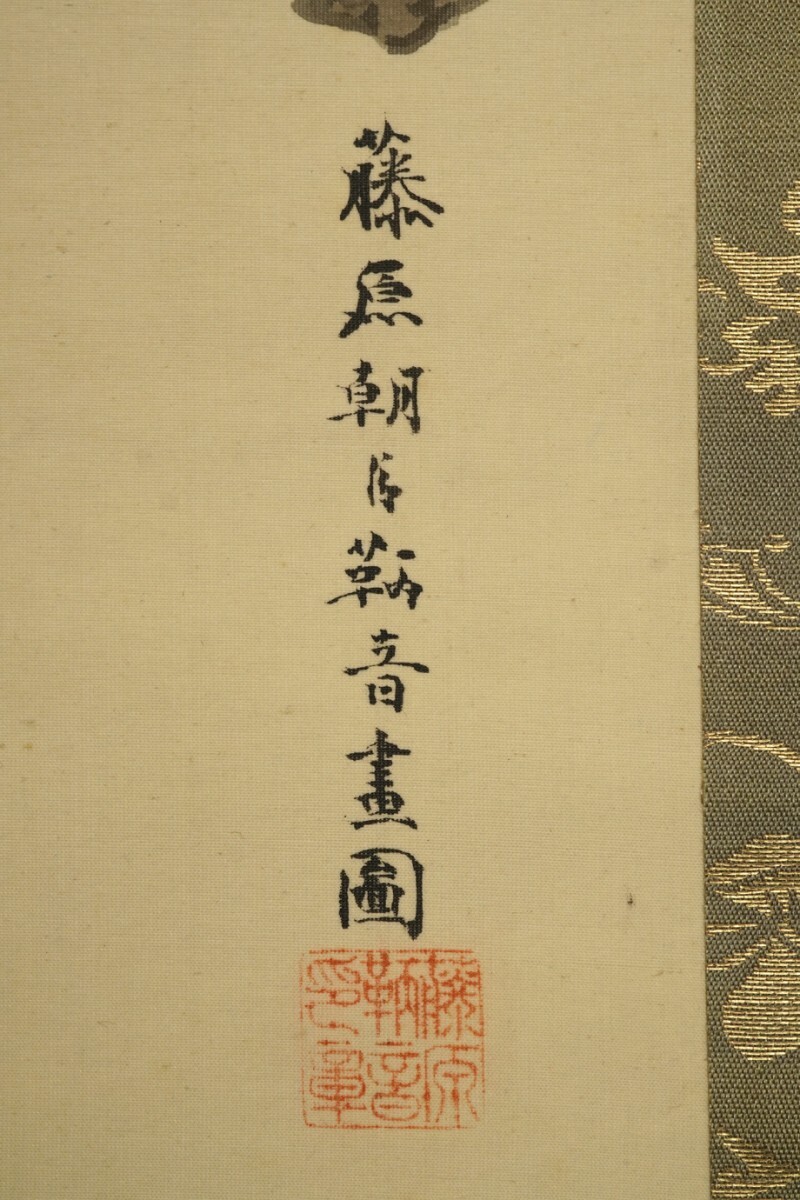 藤原朝臣鞆音畫圖
藤原
鞆音
印章